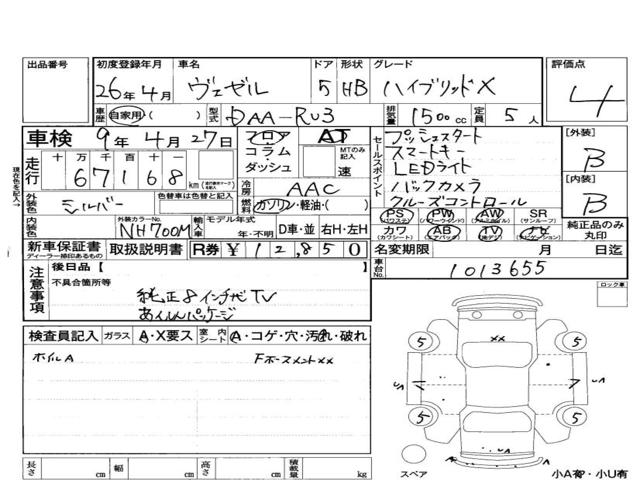 出品番号
初度登録年月 車名 ドア 形状 グレード 評価点
26年4月 ヴェゼル 5 HB ハイブリッドX 4
車歴 自家用( ) 型式 DAA-RU3 排気量 1500cc 定員 5人
車検 9年4月27日 フロア コラム ダッシュ AT MTのみ記入 速
セールスポイント プッシュスタート
スマートキー
LEDライト
バックカメラ
クルーズコントロール
[外装] B
[内装] B
現在色を記入→
走行 十万千百十一
67168 km
冷房 AAC
外装色 シルバー 色替車は色替と記入 燃料 ガソリン・軽油・( )
PS (パワステ) PW (パワーウインド) AW (アルミホイル) SR (サンルーフ)
カワ (カワシート) AB (エアバック) TV (地デジ) ナビ (ナビゲーション)
純正品のみ丸印
内装色 外装カラーNo. NH700M 輸入車 モデル年式 年・不明 D車・並 右H・左H
新車保証書 ディーラー捺印あるもの 取扱説明書 R券 ¥12,850
名変期限 月 日迄
車台No. 1013655
注意事項 後日品【 】
不具合箇所等
純正8インチナビTV
あんしんパッケージ
ロック車
検査員記入 ガラス A・X要ス 室内シート A・コゲ・穴・汚れ・破れ
ホイルA Fホースメントxx
xx
5 5
5 5
UA UA
UA
スペア
小A有・小U有
長さ cm 幅 cm 高さ cm 積載量 kg